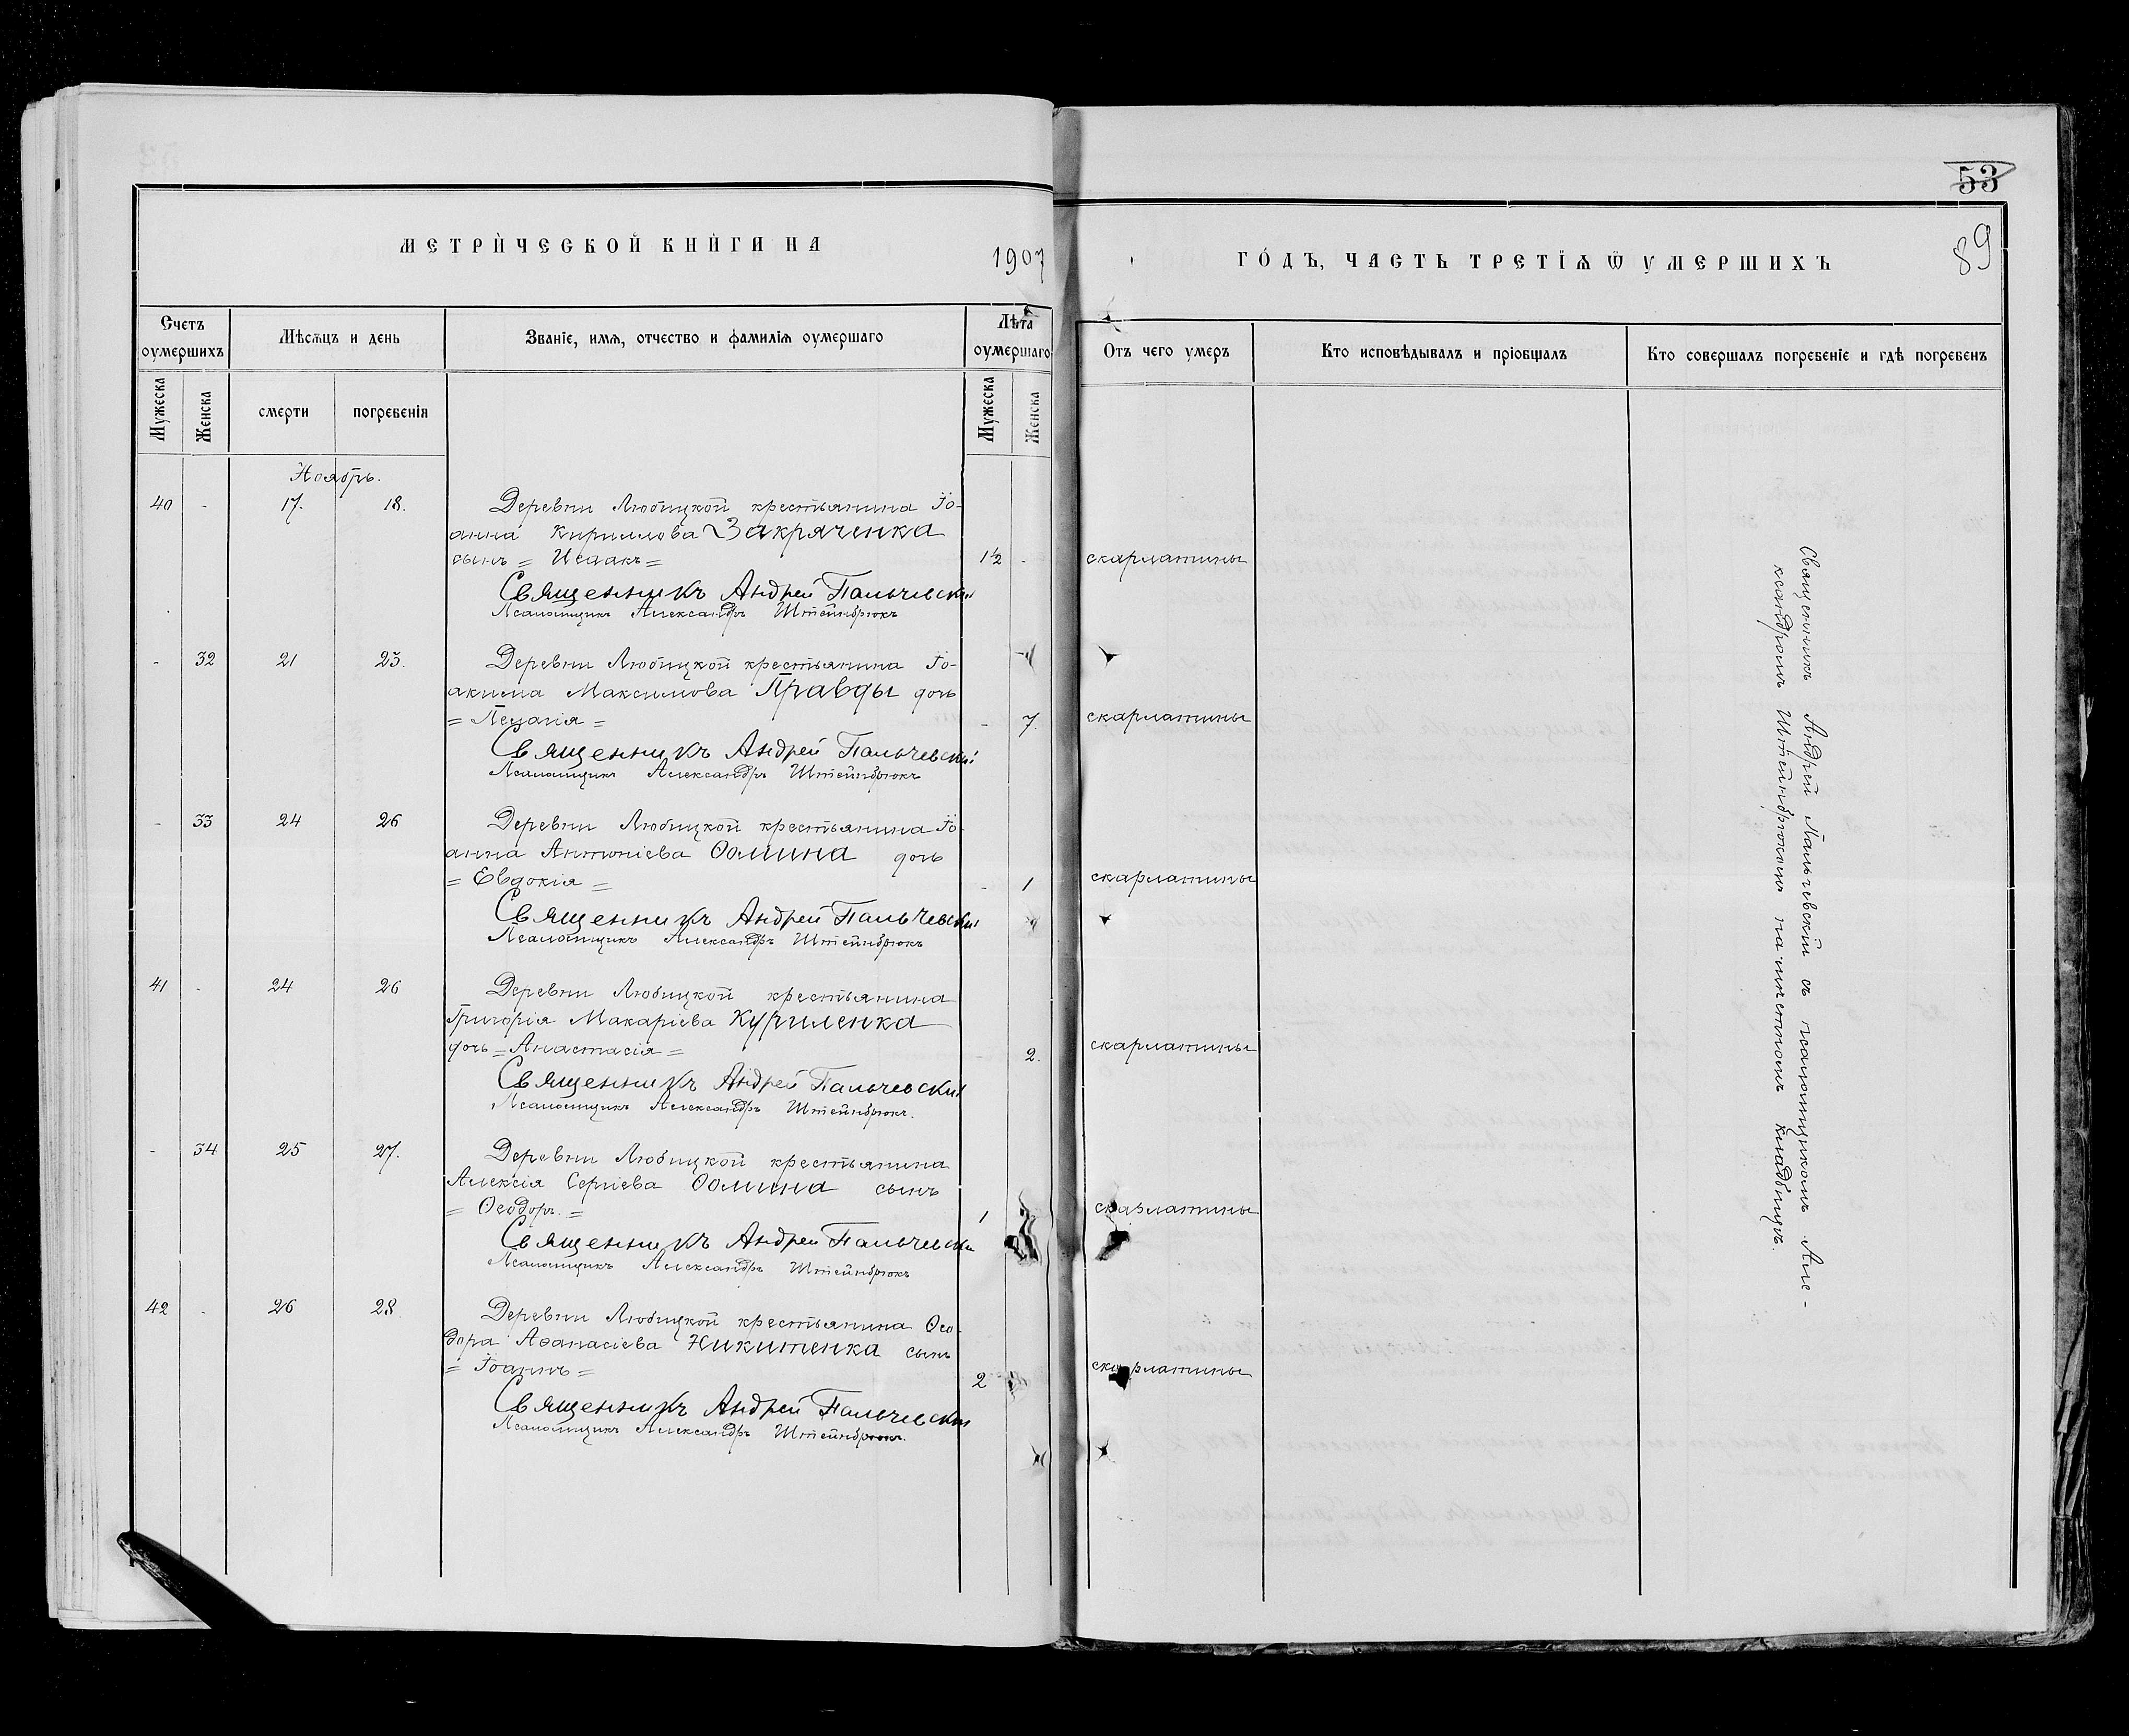 53
89
МЕТРИ́ЧЕСКОЙ КНИ́ГИ НА 1907 ГО́ДЪ, ЧАСТЬ ТРЕТІѦ Ѿ УМЕРШИХЪ
Счетъ оумершихъ
Мѣсѧцъ и день
Званіе, имѧ, отчество и фамиліѧ оумершаго
Лѣта оумершаго
Отъ чего умеръ
Кто исповѣдывалъ и пріобщалъ
Кто совершалъ погребеніе и гдѣ погребенъ
Мужеска
Женска
смерти
погребенія
Мужеска
Женска
Ноябрь.
40 - 17. 18. Деревни Любицкой крестьянина Іо-
анна Кириллова Закряченка
сынъ = Исаакъ = 1½ - скарлатины
Священникъ Андрей Пальчевскій
Псаломщикъ Александръ Штейнбрюкъ
- 32 21 23. Деревни Любицкой крестьянина Іо-
акима Максимова Правды дочь
= Пелагія = - 7. скарлатины
Священникъ Андрей Пальчевскій
Псаломщикъ Александръ Штейнбрюкъ
- 33 24 26 Деревни Любицкой крестьянина Іо-
анна Антоніева Ѳомина дочь
= Евдокія = - 1 скарлатины
Священникъ Андрей Пальчевскій
Псаломщикъ Александръ Штейнбрюкъ
41 - 24 26 Деревни Любицкой крестьянина
Григорія Макаріева Куриленка
дочь = Анастасія = - 2. скарлатины
Священникъ Андрей Пальчевскій
Псаломщикъ Александръ Штейнбрюкъ.
- 34 25 27. Деревни Любицкой крестьянина
Алексія Сергіева Ѳомина сынъ
= Ѳеодоръ. = 1 скарлатины
Священникъ Андрей Пальчевскій
Псаломщикъ Александръ Штейнбрюкъ
42 - 26 28 Деревни Любицкой крестьянина Ѳео-
дора Аѳанасіева Никитенка сынъ
= Іоаннъ = 2 скарлатины
Священникъ Андрей Пальчевскій
Псаломщикъ Александръ Штейнбрюкъ.
Священникъ Андрей Пальчевскій съ псаломщикомъ Але-
ксандромъ Штейнбрюкомъ на мѣстномъ кладбищѣ.